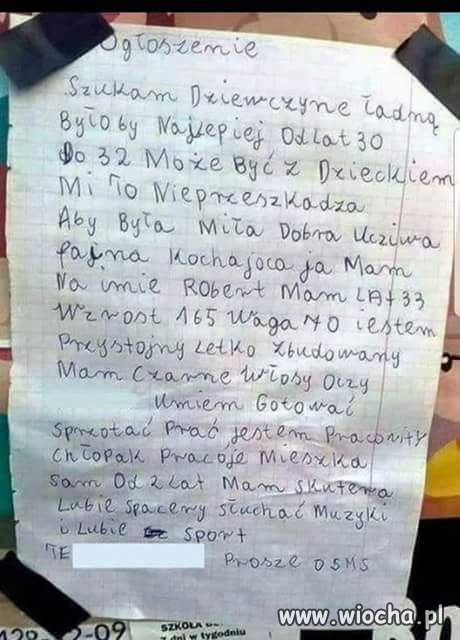 Ogłoszenie
Szukam Dziewczyne Ładną
Byłoby Najlepiej Od Lat 30
Do 32 Może Być z Dzieckiem
Mi To Nieprzeszkadza
Aby Była Miła Dobra Uczciwa
fajna Kochajoca ja Mam
Na imie Robert Mam LAt 33
Wzrost 165 Waga 70 iestem
Przystojny Letko Zbudowany
Mam Czarne Włosy Oczy
Umiem Gotować
Sprzotać Prać jestem Pracowity
Chłopak Pracoje Mieszka
Sam Od 2 Lat Mam Skutera
Lubie Spacery Słuchać Muzyki
i Lubie Sport
TE
Prosze O SMS
2-09
SZKOŁA
dni w tygodniu
www.wiocha.pl